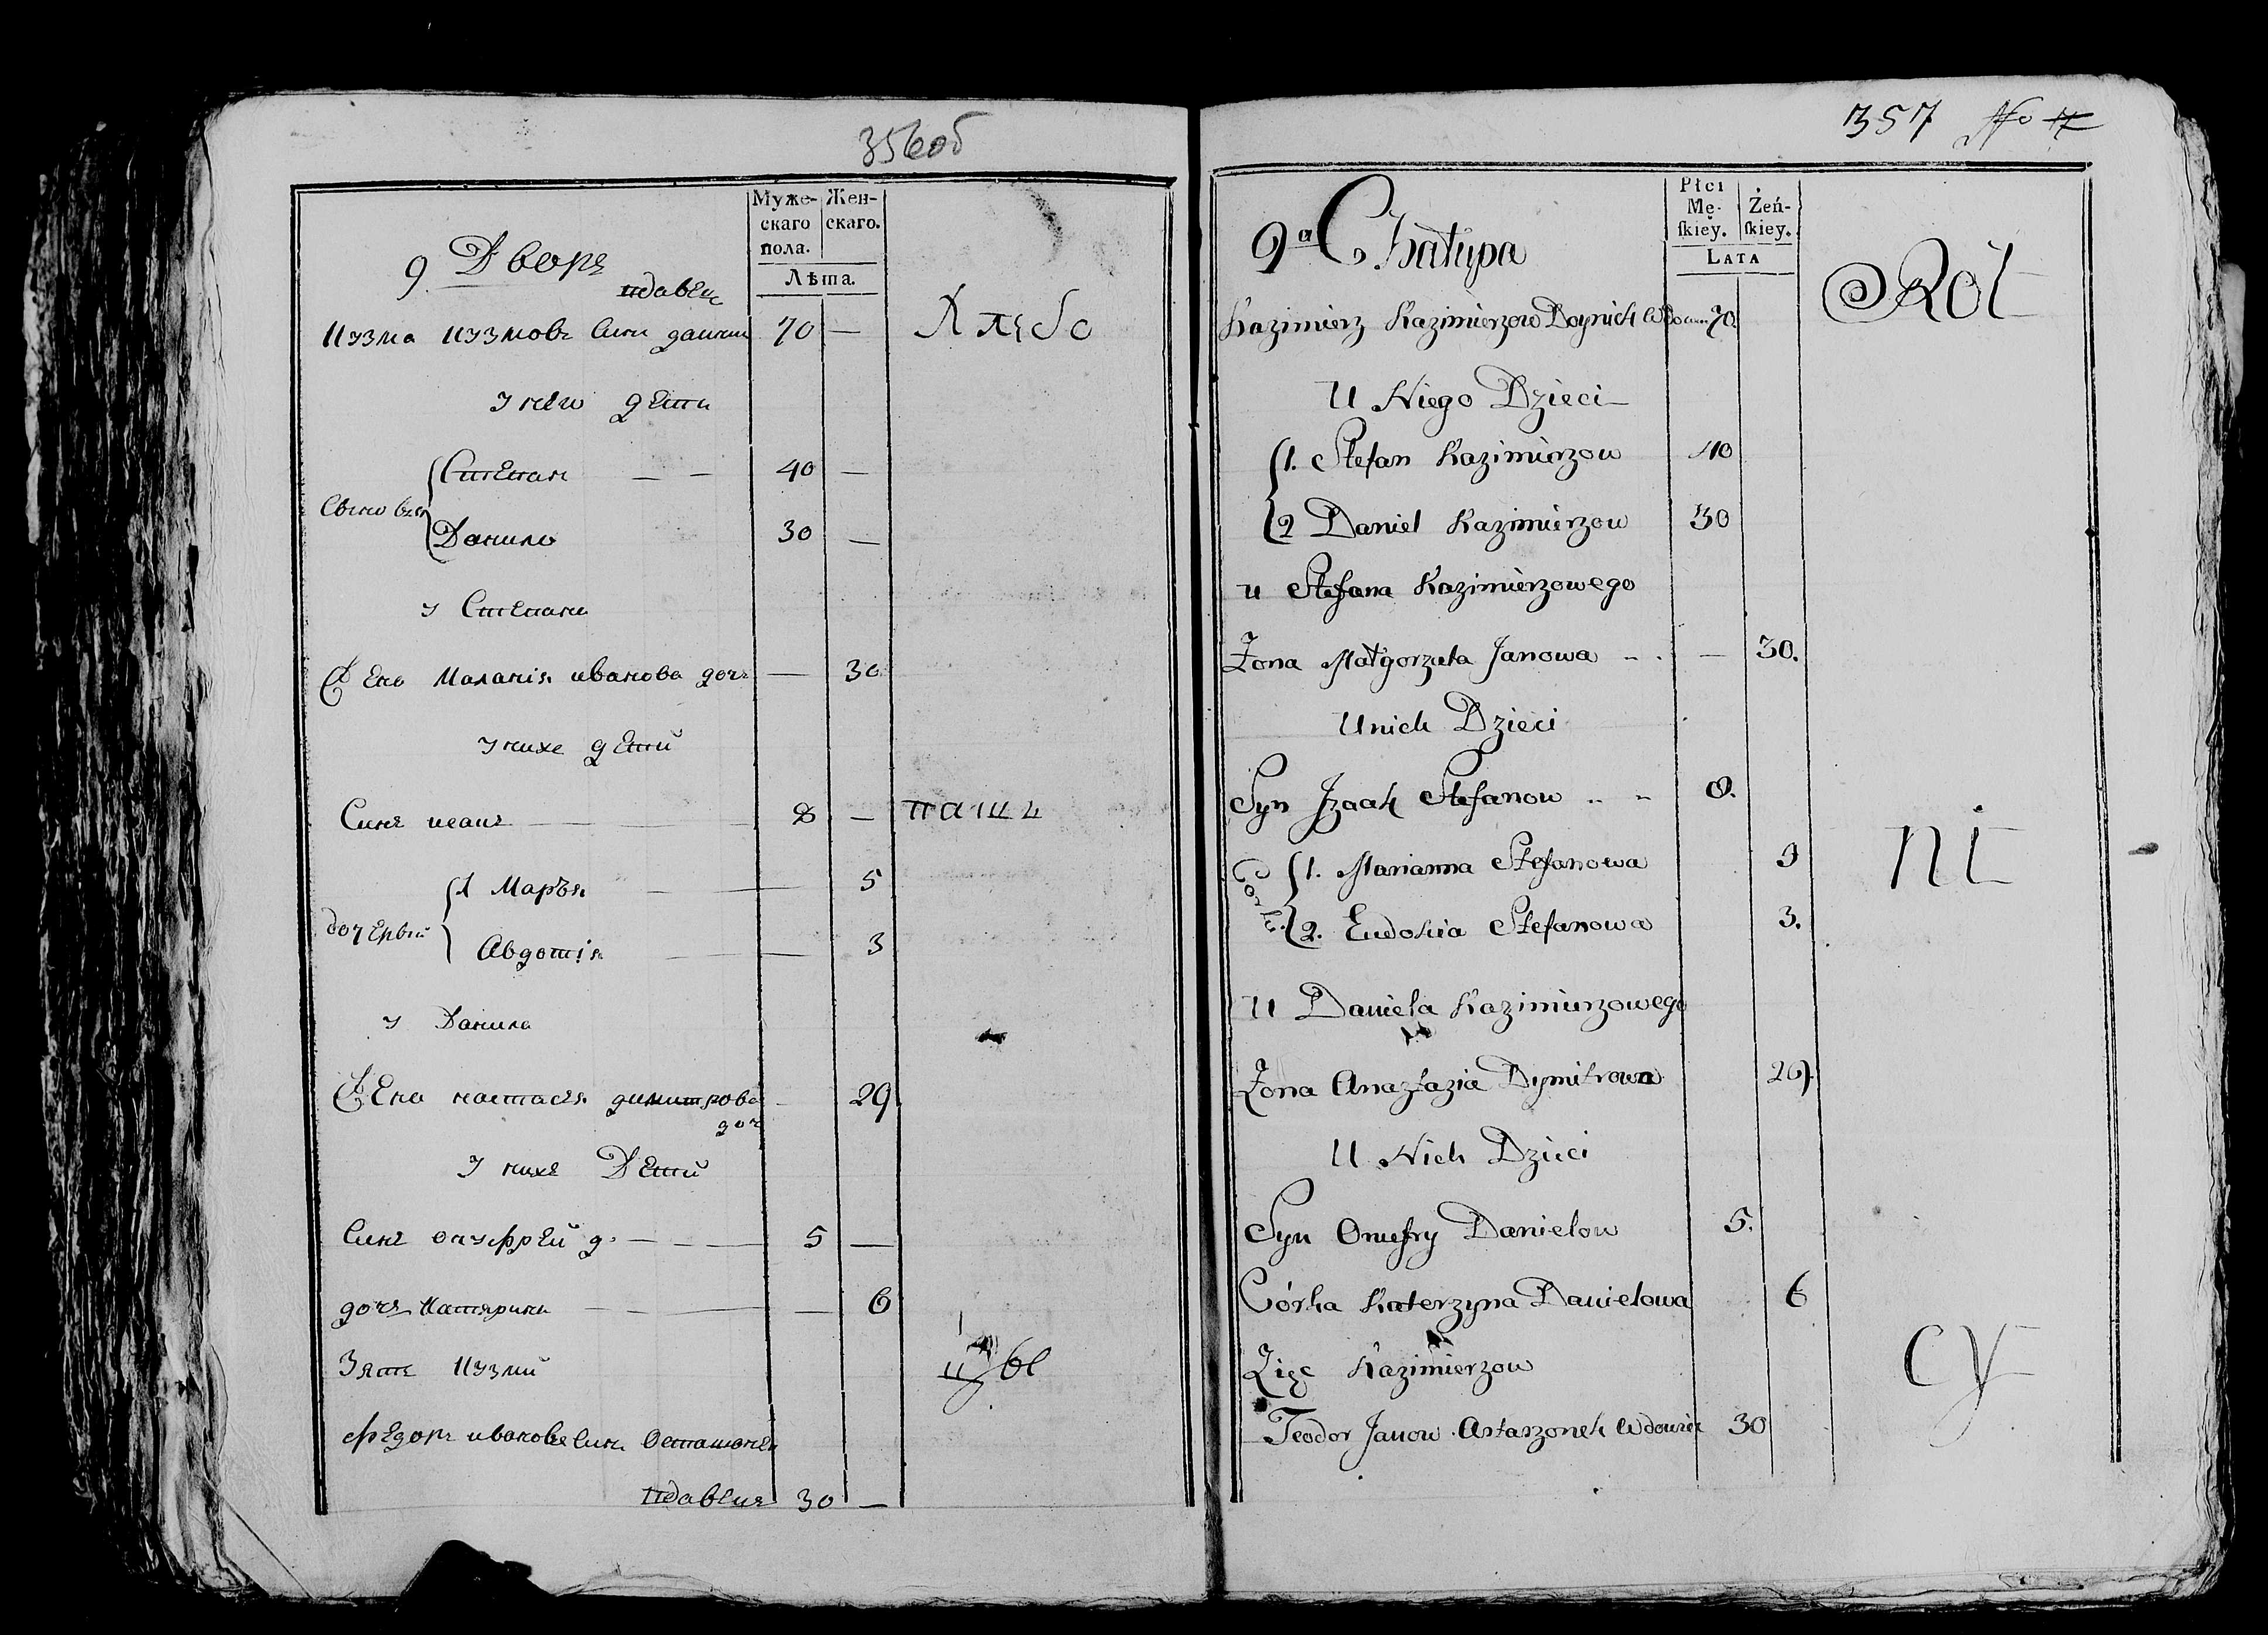 356об
Муже-
скаго
пола.
Жен-
скаго.
Лѣта.
9. Дворъ
вдавец
Кузма Кузмовъ синъ 70 —
Хлѣбо
У него дети
Степан — — 40 —
Синовья
Данило 30 —
у Степана
Жена Маланія иванова доч — 30
У нихъ детй
Синъ исакъ — — 8 —
паш
1 Марья — — 5
дочерей
Авдотія — — 3
у Данила
Жена настася димитрова 29
доч
У нихъ Детй
Синъ онуфрей д. — — 5 —
дочь Катярина — — — 6
цы
Зять Кузмй
федоръ ивановъ синъ
вдавец 30 —
357 No
Płci
Mę-
ſkiey.
Żeń-
ſkiey.
LATA
9a Chałupa
Rol
Kazimierz Kazimierzow Doynich Wdowiec 70.
U Niego Dzieci
1. Stefan Kazimierzow 40
2 Daniel Kazimierzow 30
u Stefana Kazimierzowego
Żona Małgorzata Janowa — 30.
U nich Dzieci
Syn Izaak Stefanow 8.
ni
1. Marianna Stefanowa 5
Corki
2. Eudokia Stefanowa 3.
U Daniela Kazimierzowego
Żona Anaztazia Dymitrowa 29.
U Nich Dzieci
Syn Onufry Danielow 5.
Córka Katerzyna Danielowa 6
cy
Zięc Kazimierzow
Teodor Janow Astaszonek Wdowiec 30